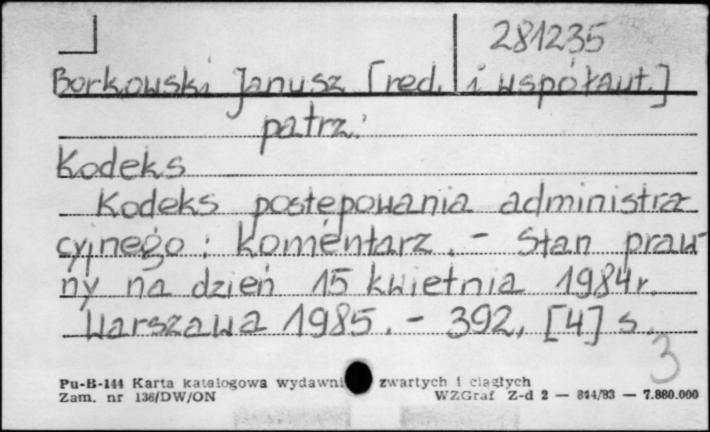 281235
Borkowski Janusz [red. i współaut.]
patrz:
Kodeks
Kodeks postępowania administra
cyjnego : komentarz. - Stan praw-
ny na dzień 15 kwietnia 1984 r.
Warszawa 1985. - 392, [4] s.
3
Pu-B-144 Karta katalogowa wydawni zwartych i ciągłych
Zam. nr 136/DW/ON WZGraf Z-d 2 — 844/83 — 7.880.000